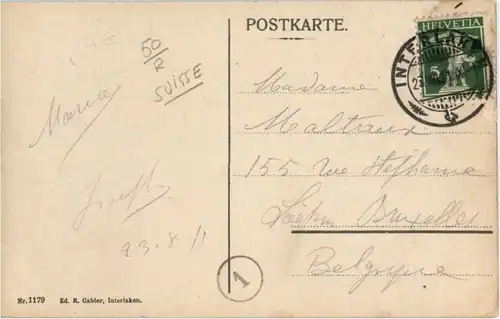 POSTKARTE.
HELVETIA
INTERLAKEN
5
50/R
SUISSE
Marie
Joseph
23-8/1
Madame
Maltaux
155 rue Stéphanie
Laeken Bruxelles
Belgique
1
Nr. 1179 Ed. R. Gabler, Interlaken.